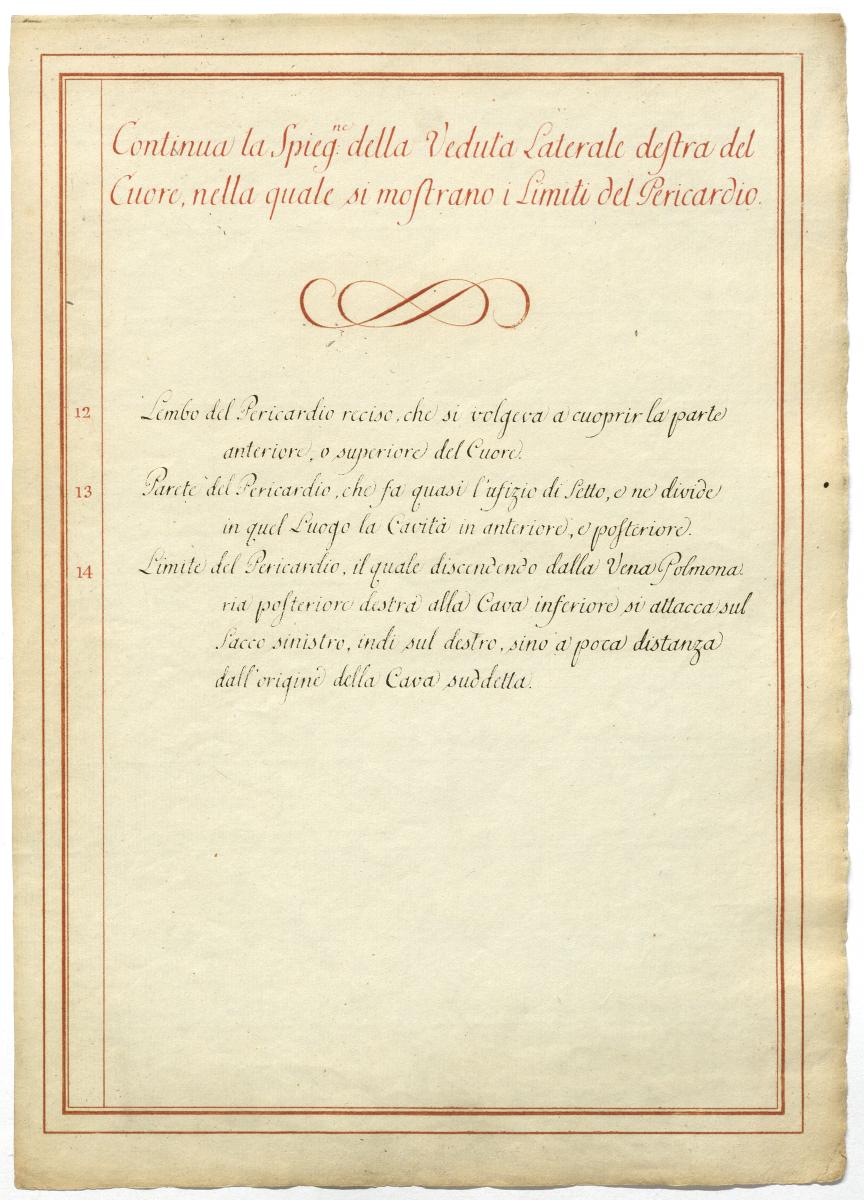 Continua la Spieg.ne della Veduta Laterale deſtra del
Cuore, nella quale si moſtrano i Limiti del Pericardio.
12 Lembo del Pericardio reciso, che si volgeva a cuoprir la parte
anteriore, o superiore del Cuore.
13 Parete del Pericardio, che fa quasi l'ufizio di Setto, e ne divide
in quel Luogo la Cavità in anteriore, e poſteriore.
14 Limite del Pericardio, il quale discendendo dalla Vena Polmona
ria poſteriore destra alla Cava inferiore si attacca sul
Sacco sinistro, indi sul destro, sino a poca distanza
dall'origine della Cava suddetta.